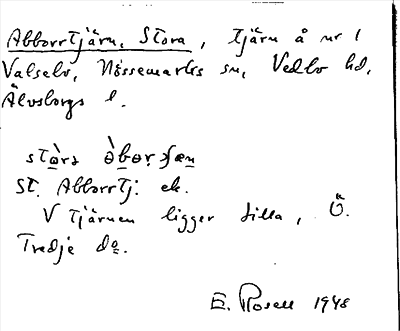 Abborrtjärn, Stora, tjärn å nr 1
Valselv, Nössemarks sn, Vedbo hd,
Älvsborgs l.
stòra àbor̥ ʃæn
St. Abborrtj. ek.
V tjärnen ligger Lilla, Ö.
Tredje do.
E. Rosell 1948